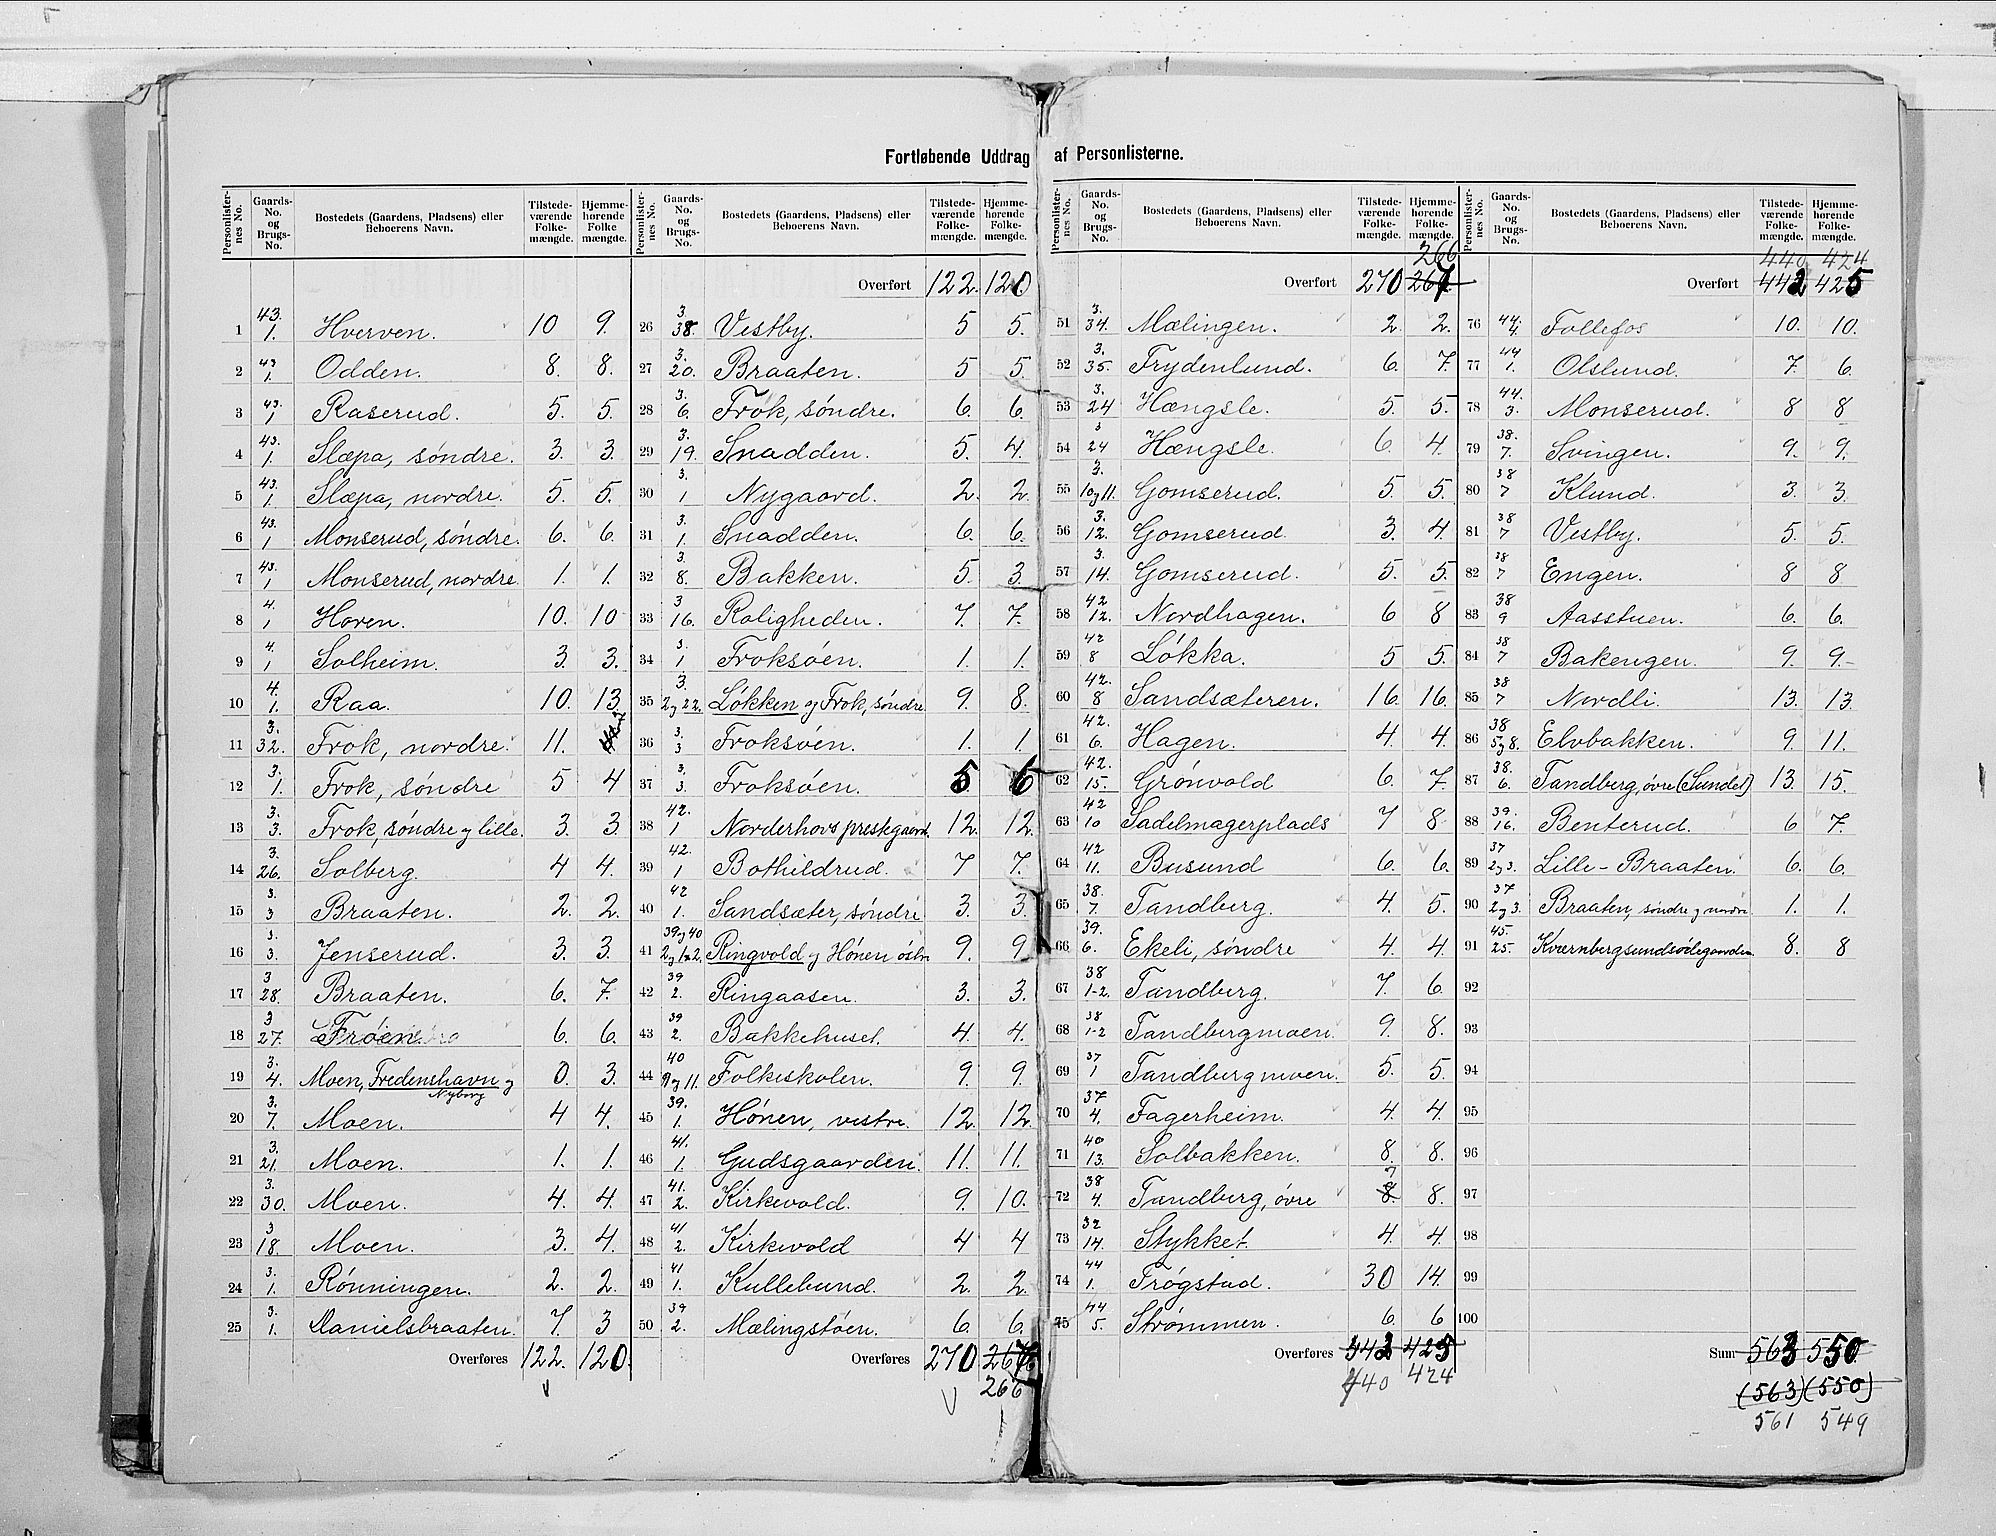 Fortløbende Uddrag af Personlisterne.
Personlister-nes No. | Gaards-No. og Brugs-No. | Bostedets (Gaardens, Pladsens) eller Beboerens Navn. | Tilstede-værende Folke-mængde. | Hjemme-hørende Folke mængde.
1 43. 1. Hverven. 10 9.
2 43 1. Odden. 8. 8.
3 43. 1 Raserud. 5. 5.
4 43. 1. Slæpa, søndre. 3. 3.
5 43. 1. Slæpa, nordre. 5. 5.
6 43. 1 Monserud, søndre. 6. 6.
7 43. 1 Monserud, nordre 1. 1.
8 4. 1 Hoven. 10. 10
9 4. 1 Solheim. 3. 3.
10 4. 1. Raa. 10. 13
11 3. 32. Frok, nordre. 11.
12 3. 1. Frok, søndre 5 4
13 3. 3. Frok, søndre og lille. 3. 3
14 3. 26. Solberg. 4 4.
15 3. 3 Braaten. 2. 2.
16 3. 3 Jenserud. 3. 3.
17 3 28. Braaten. 6. 7.
18 3 27. Frøen. 6. 6.
19 3. 4. Moen, Fredenshavn og Nyborg 0. 3.
20 3. 7. Moen. 4 4.
21 3. 21. Moen. 1. 1.
22 3. 30. Moen. 4. 4.
23 3 18. Moen. 3. 4.
24 3. 1. Rønningen. 2. 2.
25 3. 1. Danielsbraaten. 7. 3
Overføres 122. 120.
Personlister-nes No. | Gaards-No. og Brugs-No. | Bostedets (Gaardens, Pladsens) eller Beboerens Navn. | Tilstede-værende Folke-mængde. | Hjemme-hørende Folke-mængde.
Overført 122. 120.
26 3 38. Vestby. 5 5.
27 3. 20. Braaten. 5 5.
28 3. 6. Frok, søndre. 6. 6.
29 3. 19. Snadden. 5. 4.
30 3. 1 Nygaard. 2. 2.
31 3. 1. Snadden. 6. 6.
32 3. 8. Bakken. 5. 3.
33 3 16. Roligheden. 7. 7.
34 3. 1 Froksøen. 1. 1.
35 3. 2 og 22. Løkken og Frok, søndre 9. 8.
36 3. 3 Froksøen. 1. 1.
37 3. 3. Froksøen. 5 6
38 42. 1 Norderhovs prestegaard. 12. 12.
39 42. 1 Bothildrud. 7 7.
40 42 1. Sandsæter, søndre 3. 3.
41 39 og 40 2 og 1-2. Ringvold og Hønen østre 9. 9.
42 39 2. Ringaasen. 3. 3.
43 39 2. Bakkehuset. 4. 4.
44 40 9 og 11. Folkeskolen. 9. 9.
45 39. 1. Hønen, vestre. 12 12.
46 41. 1. Gudsgaarden. 11. 11.
47 41. 2. Kirkevold. 9. 10.
48 41 2. Kirkevold 4 4
49 41 1. Kullebund. 2 2.
50 39 2. Mælingstøen. 6. 6.
Overføres 270 267
266
Personlister-nes No. | Gaards-No. og Brugs-No. | Bostedets (Gaardens, Pladsens) eller Beboerens Navn. | Tilstede-værende Folke-mængde. | Hjemme-hørende Folke-mængde.
266
Overført 270 267
51 3. 34. Mælingen. 2. 2.
52 3. 35. Frydenlund. 6. 7.
53 3. 24 Hængsle. 5. 5.
54 3 24 Hængsle. 6 4.
55 3. 10 og 11. Gomserud. 5. 5.
56 3. 12. Gomserud. 3. 4.
57 3. 14. Gomserud. 5. 5.
58 42 12. Nordhagen. 6 8
59 42 8 Løkka. 5 5.
60 42. 8 Sandsæteren. 16. 16.
61 42. 6. Hagen. 4. 4.
62 42. 15. Grønvold 6. 7.
63 42 10 Sadelmagerplads 7 8.
64 42 11. Busund 6. 6.
65 38. 7. Tandberg. 4. 5.
66 39. 6. Ekeli, søndre 4 4.
67 38 1-2. Tandberg. 7 6.
68 38 1-2 Tandbergmoen. 9. 8.
69 37 1 Tandbergmoen. 5. 5.
70 37 4. Fagerheim. 4. 4.
71 40 13. Solbakken. 8. 8.
72 38 4. Tandberg, øvre 7 8. 8.
73 32 14. Stykket. 4. 4.
74 44 1. Trøgstad. 30 14.
75 44 5. Strømmen. 6. 6
Overføres 442 425
440 424
Personlister-nes No. | Gaards-No. og Brugs-No. | Bostedets (Gaardens, Pladsens) eller Beboerens Navn. | Tilstede-værende Folke-mængde. | Hjemme-hørende Folke-mængde.
440 424
Overført 442 425
76 44. 4. Follefos 10. 10.
77 44 1. Olslund. 7. 6.
78 44. 3. Monserud. 8 8
79 38. 7. Svingen. 9. 9.
80 38 7 Klund. 3. 3.
81 38 7 Vestby. 5. 5.
82 38 7 Engen. 8 8
83 38 9 Aasstuen. 6. 6.
84 38 7 Bakengen. 9. 9.
85 38 7 Nordli. 13. 13.
86 38 5 og 8. Elvbakken. 9. 11.
87 38. 6. Tandberg, øvre (Sundet) 13. 15.
88 39. 16. Benterud. 6 7.
89 37 2 og 3. Lille-Braaten. 6. 6.
90 37 2 og 3. Braaten, søndre og nordre 1. 1.
91 45. 25. Kværnbergsundsødegaarden. 8. 8
92
93
94
95
96
97
98
99
100
Sum 563 550
(563) (550)
561 549